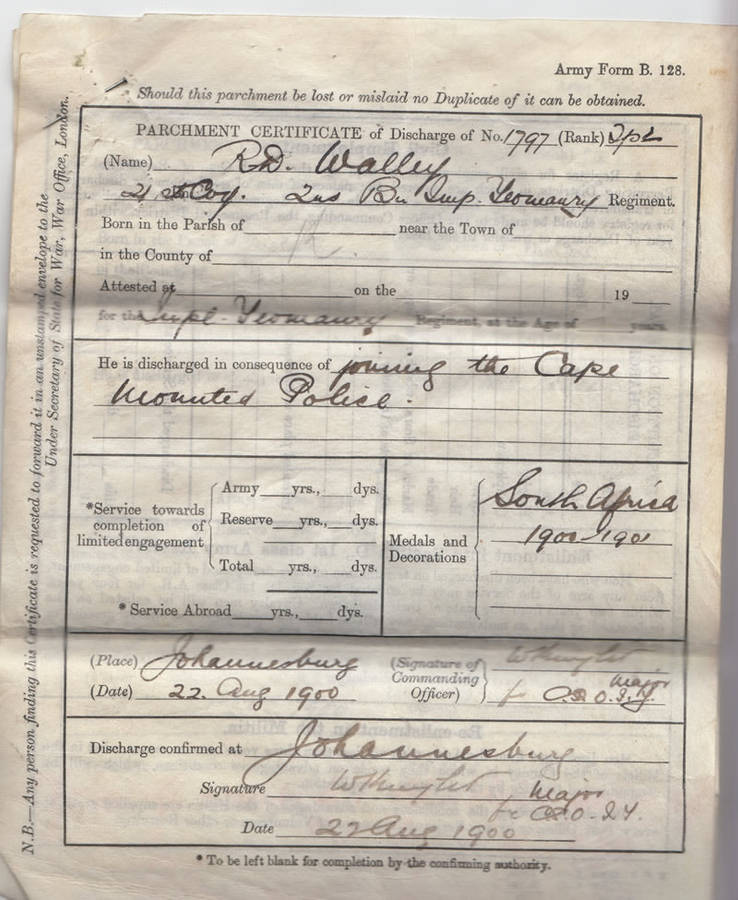 Army Form B. 128.
Should this parchment be lost or mislaid no Duplicate of it can be obtained.
PARCHMENT CERTIFICATE of Discharge of No. 1797 (Rank)
(Name) R.D. Walley
21 st Coy. 2nd Bn Imp. Yeomanry Regiment.
Born in the Parish of near the Town of
in the County of
Attested at on the 19
for the Impl. Yeomanry Regiment, at the Age of years.
He is discharged in consequence of joining the Cape
Mounted Police.
*Service towards completion of limited engagement
Army yrs., dys.
Reserve yrs., dys.
Total yrs., dys.
* Service Abroad yrs., dys.
Medals and Decorations
South Africa
1900-1901
(Place) Johannesburg
(Date) 22. Aug 1900
(Signature of Commanding Officer)
Major
for C.S.O. I.Y.
Discharge confirmed at Johannesburg
Signature Major
for C.S.O. I.Y.
Date 22 Aug 1900
* To be left blank for completion by the confirming authority.
N.B.—Any person finding this Certificate is requested to forward it in an unstamped envelope to the
Under Secretary of State for War, War Office, London.